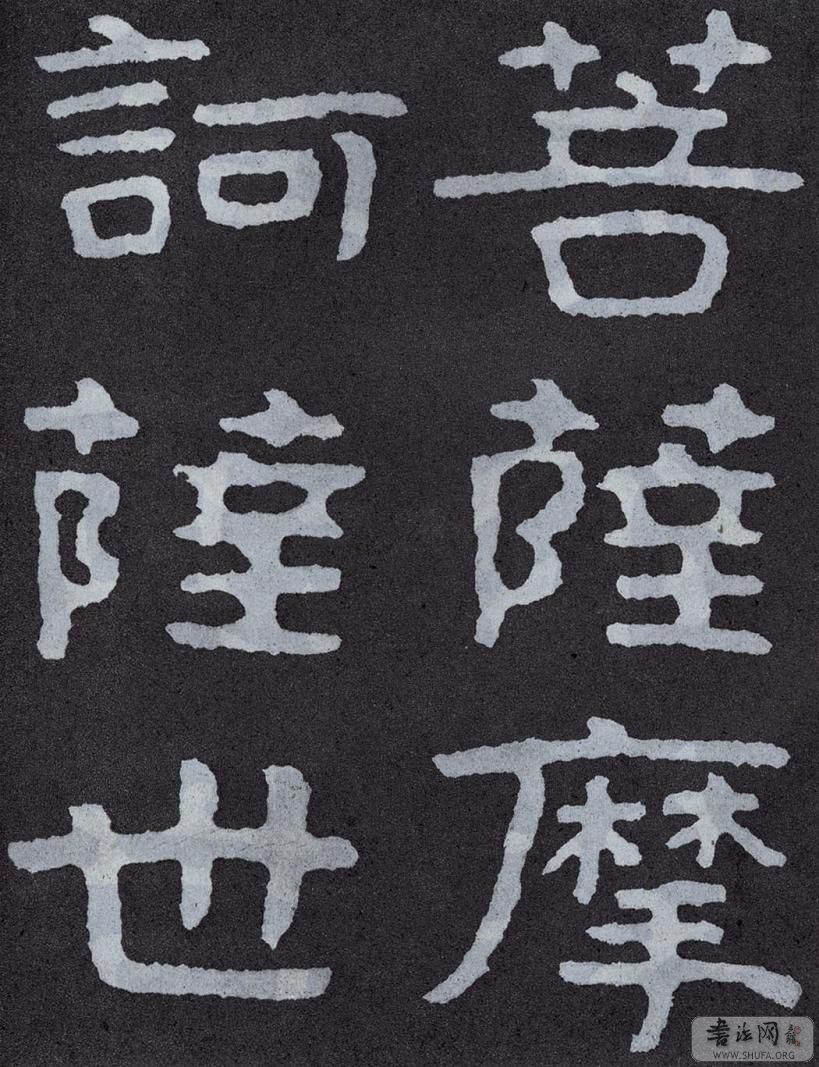 菩薩摩
訶薩世
書法网
WWW.SHUFA.ORG